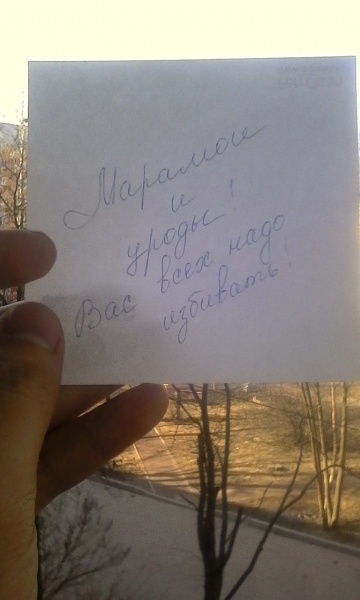 Марамои
и
уроды!
Вас всех надо
избивать!